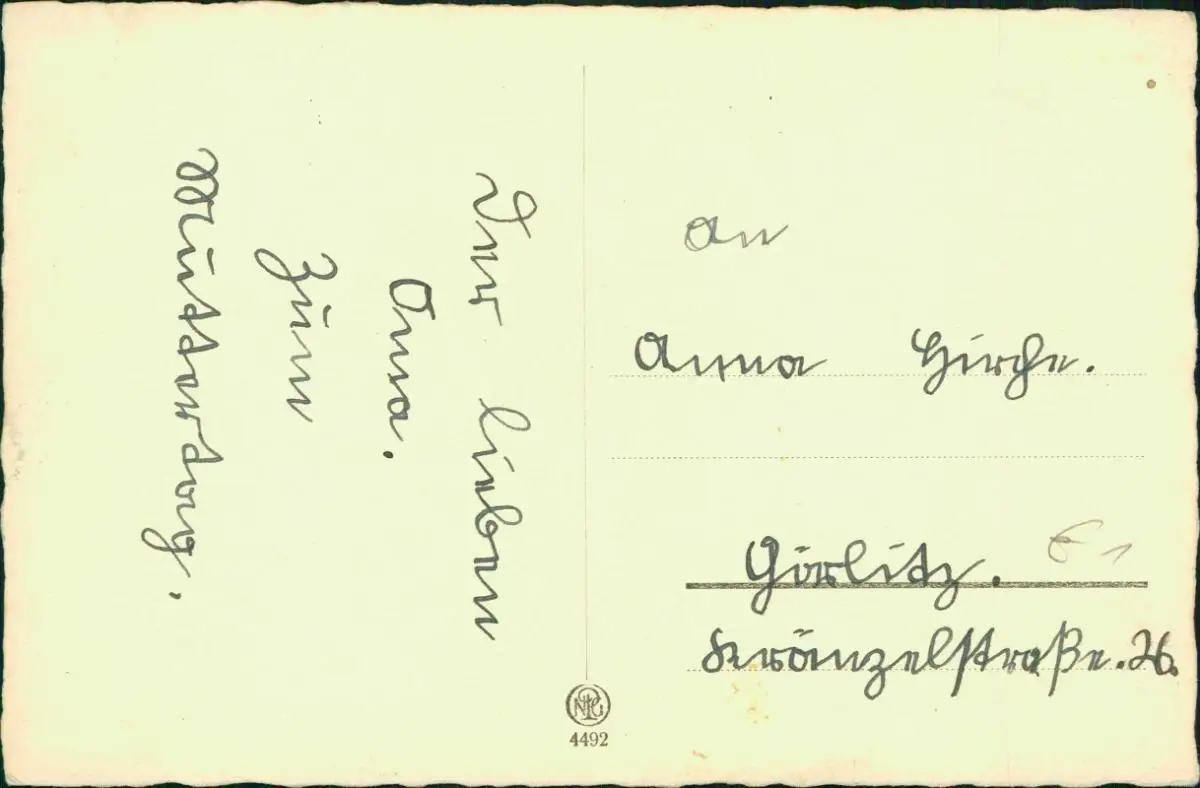 Der lieben
Oma.
Zum
Muttertag.
An
Anna Hirche.
Görlitz.
Kränzelstraße. 26.
NPG
4492